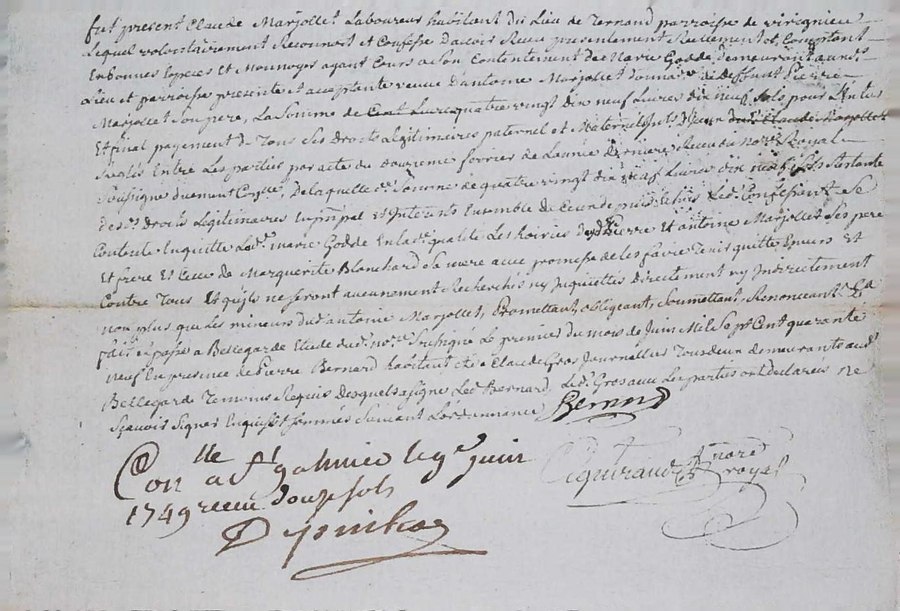 fut present Claude Marjollet Laboureur habitant du Lieu de Ternand parroisse de viricgnieu
Lequel volontairement Reconnoit et Confesse Davoir Receu presentement Reellement et Comptant
En bonnes Especes Et Monnoyes ayant Cours a Son Contentement de Marie Godde demeurant aud.
Lieu et parroisse presente et acceptante veuve D'antoine Marjollet Donnatre de deffunt Pierre
Marjollet Son pere, La Somme de quatre vingt dix neuf Livres dix neuf Sols pour L'Entier
Et final payement de Tous Ses Droits Legitimaires paternel et Maternel
Reglés Entre Les parties par acte du douzieme fevrier de Lannée Derniere Receu du no.re Royal
Soussigné duement Con.lle, De laquelle d. Somme de quatre vingt dix neuf Livres dix neuf Sols
des d. Droits Legitimaires En prinpal Et Interets Ensemble de Led. Confessant Se
Contente Enquitte Lad. marie Godde En lad. qualité Les hoiries de Pierre Et antoine Marjollet Ses pere
Et frere Et Celle de Marguerite Blanchard Sa mere avec promesse de les favre Tenir quitte Envers Et
Contre Tous Et quils ne Seront aucunement Recherchés ny Inquiettés directement ny Indirectement
non plus que Les mineurs dud. antoine Marjollet, Promettant, obligeant, Soumettant, Renonceant &.a
fait et passé a Bellegarde Etude du d. no.re Sussigné Le premier du mois de Juin Mil Sept Cent quarante
neuf En presence de Pierre Bernard habitant et Claude Gros Journellier demeurants aud.
Bellegarde Temoins Requis Desquels a Signé Led. Bernard, Led. Gros avec Les parties ont declarés ne
Sçavoir Signer Enquis Et Sommés Suivant L'ordonnance Bernard
Con.lle a S.t galmier le 9.e juin
1749 receu douze sols
no.re royal